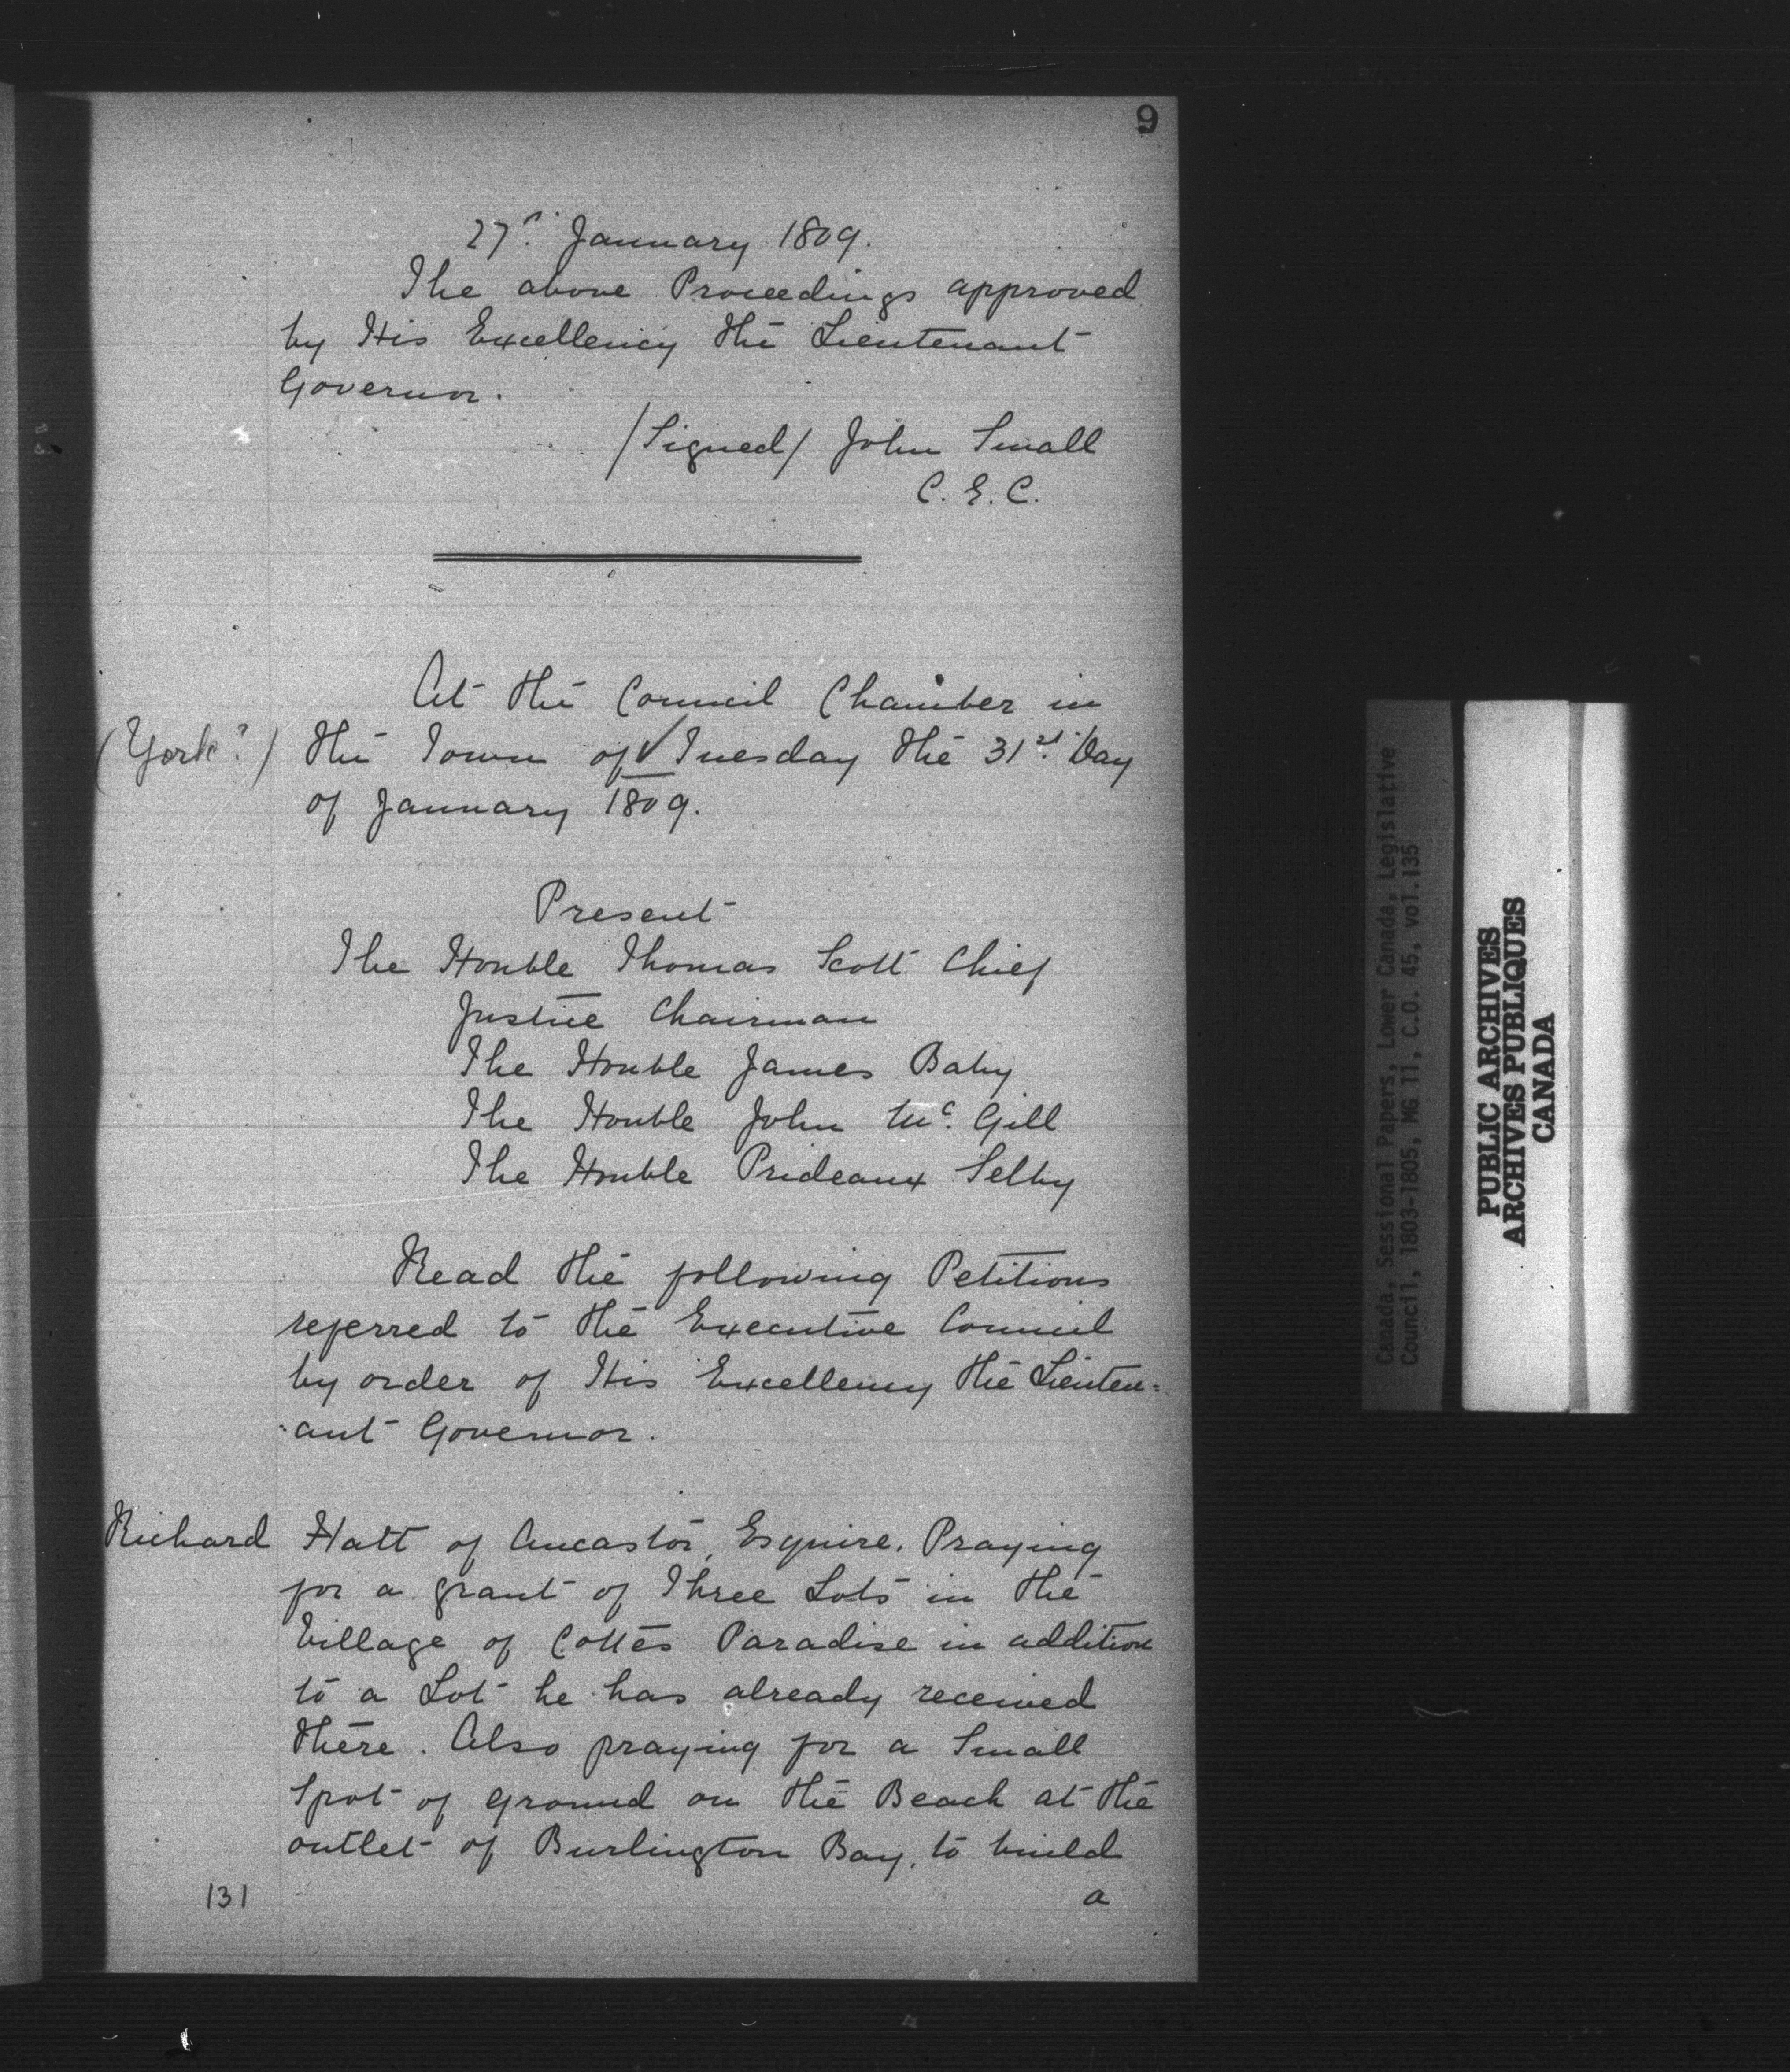 9
27th January 1809.
The above Proceedings approved
by His Excellency the Lieutenant
Governor.
/Signed/ John Small
C. E. C.
At the Council Chamber in
(York?) the Town of ✓ Tuesday the 31st Day
of January 1809.
Present
The Honble Thomas Scott Chief
Justice Chairman
The Honble James Baby
The Honble John Mc. Gill
The Honble Prideaux Selby
Read the following Petitions
referred to the Executive Council
by order of His Excellency the Lieuten=
-ant Governor.
Richard Hatt of Ancaster, Esquire. Praying
for a grant of Three Lots in the
Village of Cootes Paradise in addition
to a Lot he has already received
there. Also praying for a Small
Spot of ground on the Beach at the
outlet of Burlington Bay, to build
131 a
Canada, Sessional Papers, Lower Canada, Legislative
Council, 1803-1805, MG 11, C.O. 45, vol.135
PUBLIC ARCHIVES
ARCHIVES PUBLIQUES
CANADA